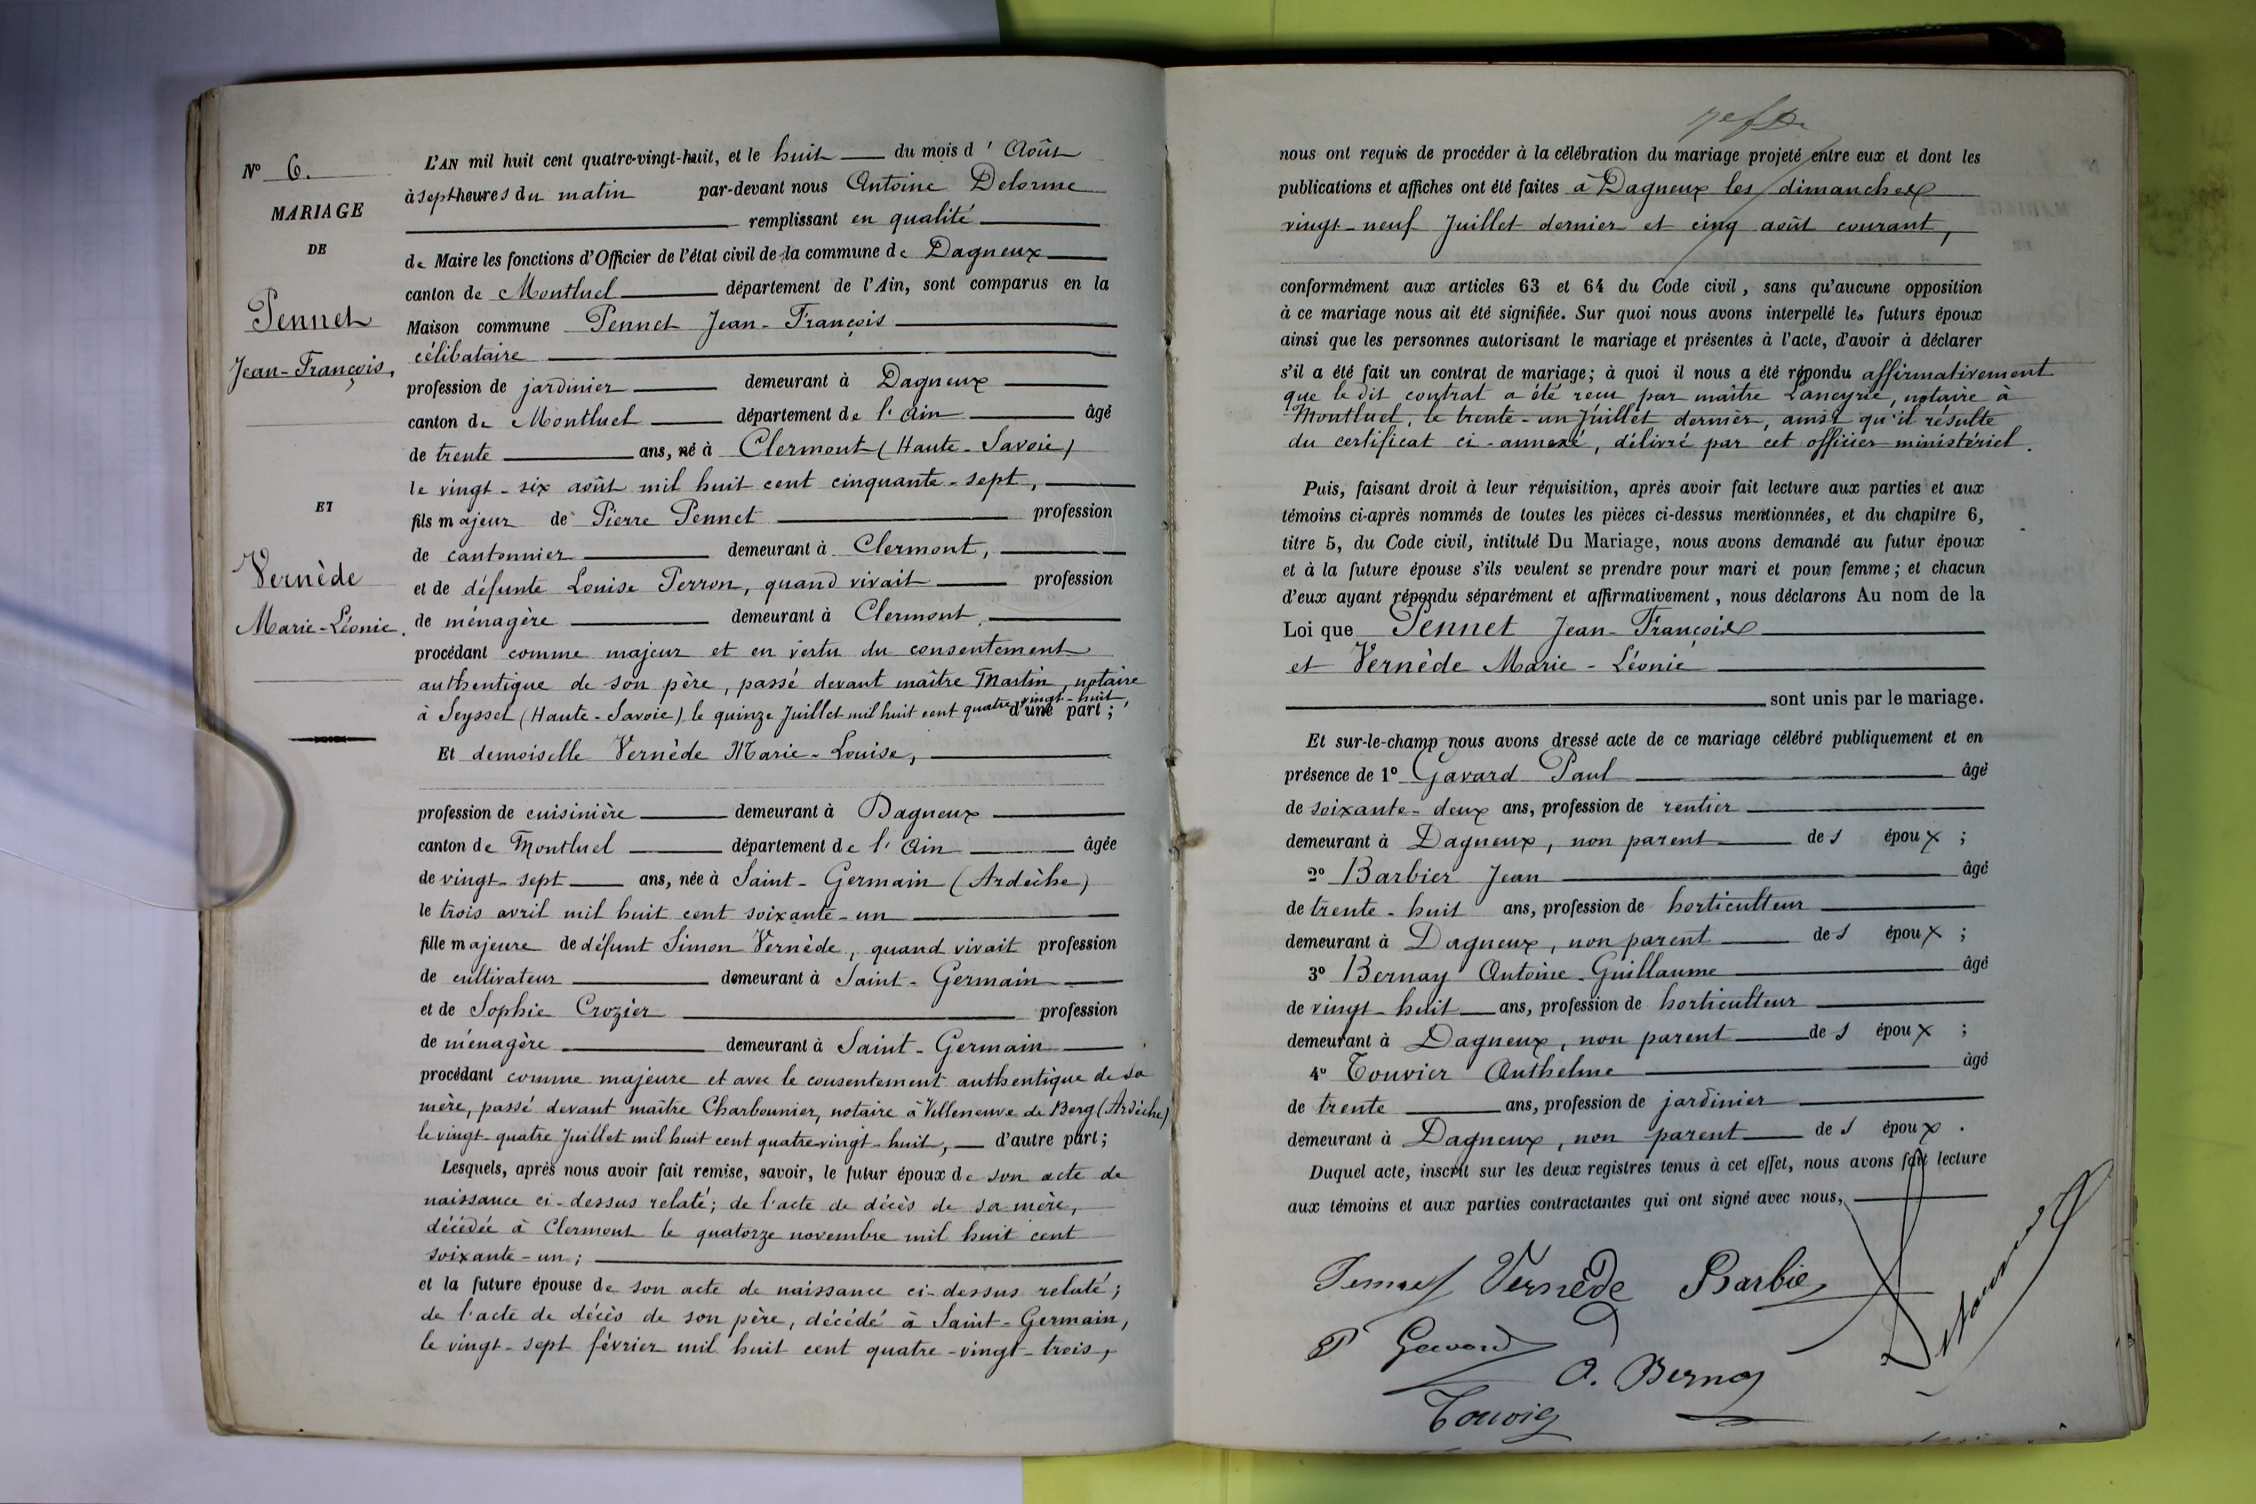 N° 6.
MARIAGE
DE
Pennet
Jean-François,
ET
Vernède
Marie-Léonie.
L'AN mil huit cent quatre-vingt-huit, et le huit du mois d'Août
à sept heures du matin par-devant nous Antoine Delorme
remplissant en qualité
de Maire les fonctions d'Officier de l'état civil de la commune de Dagneux
canton de Montluel département de l'Ain, sont comparus en la
Maison commune Pennet Jean-François
célibataire
profession de jardinier demeurant à Dagneux
canton de Montluel département de l'Ain âgé
de trente ans, né à Clermont (Haute-Savoie)
le vingt-six août mil huit cent cinquante-sept,
fils majeur de Pierre Pennet profession
de cantonnier demeurant à Clermont,
et de défunte Louise Perron, quand vivait profession
de ménagère demeurant à Clermont,
procédant comme majeur et en vertu du consentement
authentique de son père, passé devant maître Martin, notaire
à Seyssel (Haute-Savoie) le quinze Juillet mil huit cent quatre-vingt-huit, d'une part;
Et demoiselle Vernède Marie-Louise,
profession de cuisinière demeurant à Dagneux
canton de Montluel département de l'Ain âgée
de vingt-sept ans, née à Saint-Germain (Ardèche)
le trois avril mil huit cent soixante-un
fille majeure de défunt Simon Vernède, quand vivait profession
de cultivateur demeurant à Saint-Germain
et de Sophie Crozier profession
de ménagère demeurant à Saint-Germain
procédant comme majeure et avec le consentement authentique de sa
mère, passé devant maître Charbounier, notaire à Villeneuve de Berg (Ardèche)
le vingt-quatre Juillet mil huit cent quatre-vingt-huit, d'autre part;
Lesquels, après nous avoir fait remise, savoir, le futur époux de son acte de
naissance ci-dessus relaté; de l'acte de décès de sa mère,
décédée à Clermont le quatorze novembre mil huit cent
soixante-un;
et la future épouse de son acte de naissance ci-dessus relaté;
de l'acte de décès de son père, décédé à Saint-Germain,
le vingt-sept février mil huit cent quatre-vingt-trois,
nous ont requis de procéder à la célébration du mariage projeté entre eux et dont les
publications et affiches ont été faites à Dagneux les dimanches
vingt-neuf Juillet dernier et cinq août courant,
conformément aux articles 63 et 64 du Code civil, sans qu'aucune opposition
à ce mariage nous ait été signifiée. Sur quoi nous avons interpellé les futurs époux
ainsi que les personnes autorisant le mariage et présentes à l'acte, d'avoir à déclarer
s'il a été fait un contrat de mariage; à quoi il nous a été répondu affirmativement
que le dit contrat a été reçu par maître Lancyrie, notaire à
Montluel, le trente-un Juillet dernier, ainsi qu'il résulte
du certificat ci-annexé, délivré par cet officier ministériel.
Puis, faisant droit à leur réquisition, après avoir fait lecture aux parties et aux
témoins ci-après nommés de toutes les pièces ci-dessus mentionnées, et du chapitre 6,
titre 5, du Code civil, intitulé Du Mariage, nous avons demandé au futur époux
et à la future épouse s'ils veulent se prendre pour mari et pour femme; et chacun
d'eux ayant répondu séparément et affirmativement, nous déclarons Au nom de la
Loi que Pennet Jean-François
et Vernède Marie-Léonie
sont unis par le mariage.
Et sur-le-champ nous avons dressé acte de ce mariage célébré publiquement et en
présence de 1° Gavard Paul âgé
de soixante-deux ans, profession de rentier
demeurant à Dagneux, non parent des époux;
2° Barbier Jean âgé
de trente-huit ans, profession de horticulteur
demeurant à Dagneux, non parent des époux;
3° Bernay Antoine-Guillaume âgé
de vingt-huit ans, profession de horticulteur
demeurant à Dagneux, non parent des époux;
4° Touvier Anthelme âgé
de trente ans, profession de jardinier
demeurant à Dagneux, non parent des époux.
Duquel acte, inscrit sur les deux registres tenus à cet effet, nous avons fait lecture
aux témoins et aux parties contractantes qui ont signé avec nous,
Pennet Vernède Barbier
P Gavard
A. Bernay
Touvier